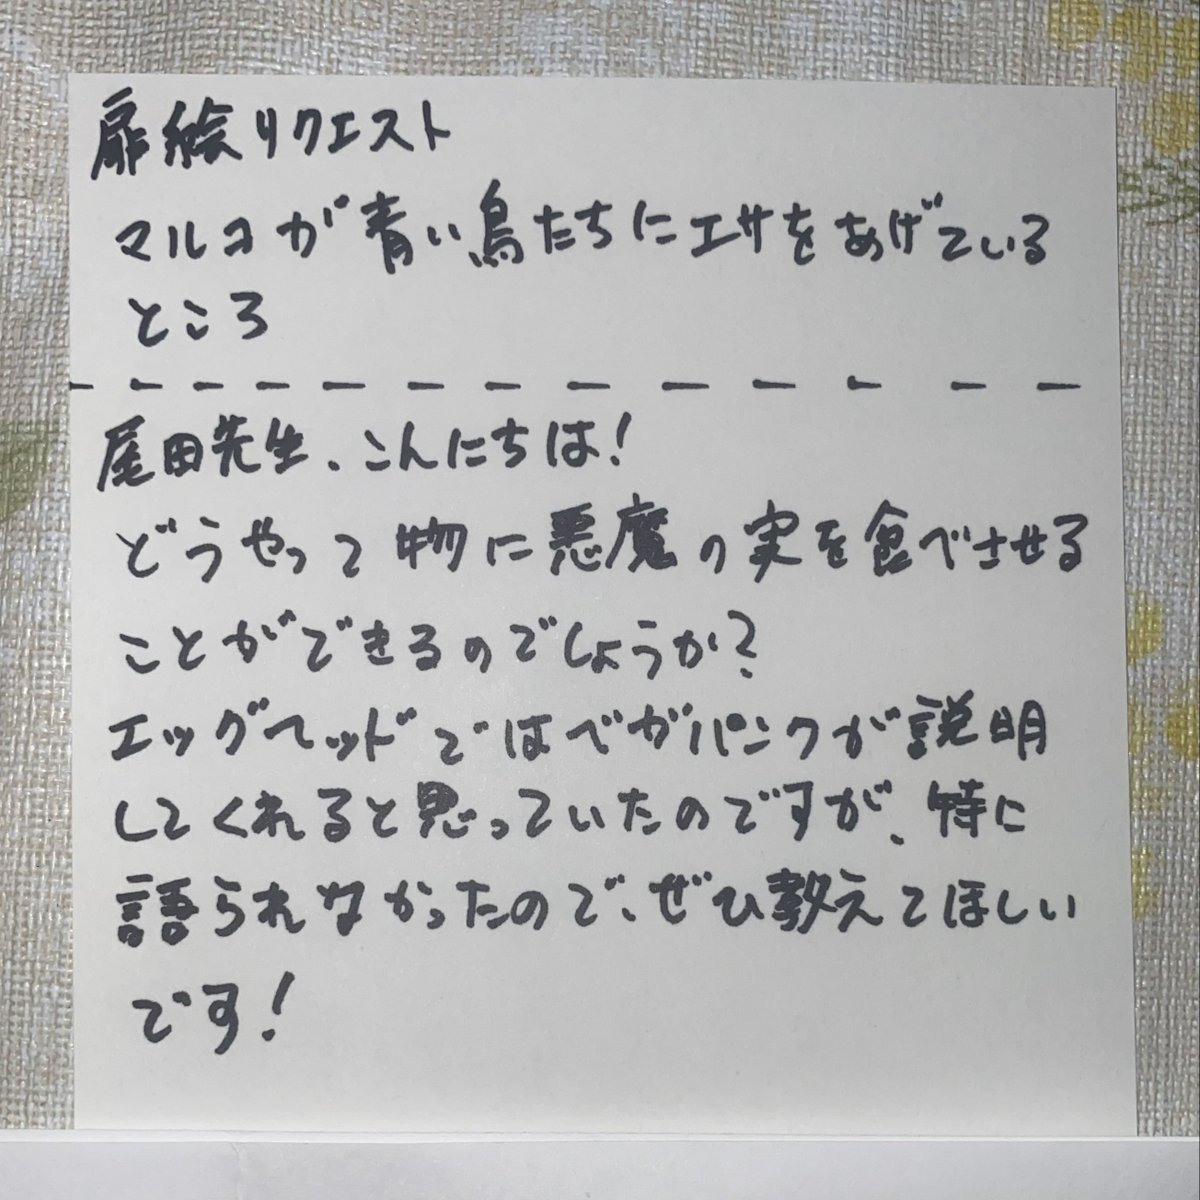 扉絵リクエスト
マルコが青い鳥たちにエサをあげている
ところ
尾田先生、こんにちは!
どうやって物に悪魔の実を食べさせる
ことができるのでしょうか?
エッグヘッドではベガパンクが説明
してくれると思っていたのですが、特に
語られなかったので、ぜひ教えてほしい
です!